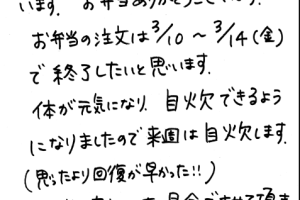 います. お弁当ありがとうございます.
お弁当の注文は3/10 〜 3/14 (金)
で 終了したいと思います.
体が元気になり. 自炊できるよう
になりましたので来週は自炊します.
(思ったより回復が早かった!!)